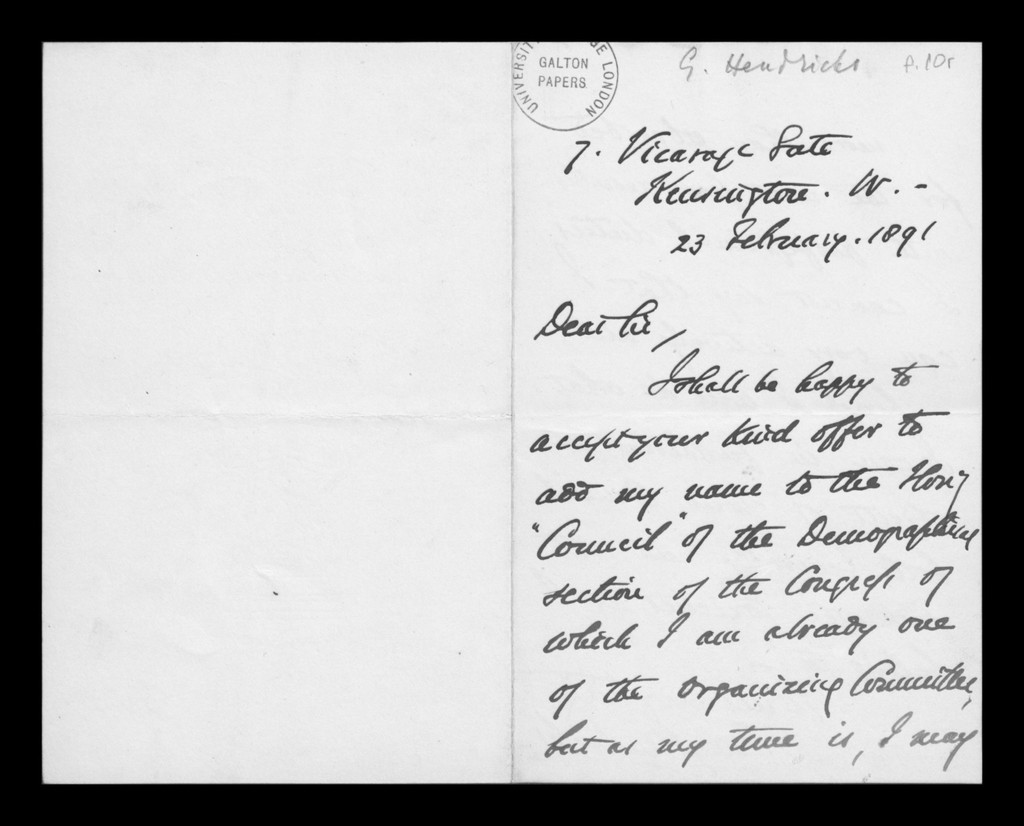 UNIVERSITY COLLEGE LONDON
GALTON
PAPERS
G. Hendricks
f.10r
7. Vicarage Gate
Kensington. W. -
23 February. 1891
Dear Sir,
I shall be happy to
accept your kind offer to
add my name to the Hony
"Council" of the Demographical
section of the Congress of
which I am already one
of the Organizing Committee,
but as my time is, I may